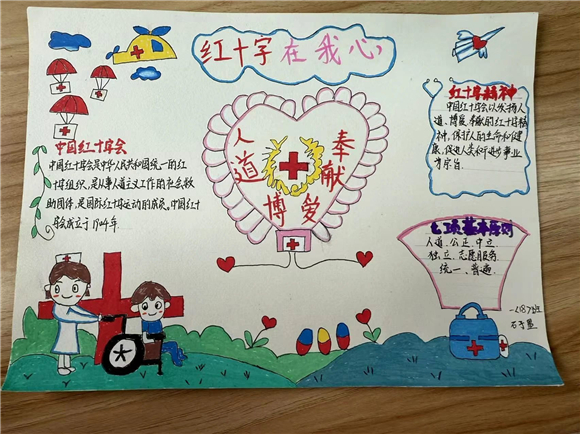 红十字在我心
中国红十字会
中国红十字会是中华人民共和国统一的红
十字组织,是从事人道主义工作的社会救
助团体,是国际红十字运动的成员。中国红十
字会成立于1904年.
人道
博爱
奉献
红十字精神
中国红十字会以发扬人
道、博爱、奉献的红十字精
神,保护人的生命和健
康,促进人类和平进步事业
为宗旨.
七项基本原则
人道、公正、中立
独立、志愿服务、
统一、普遍.